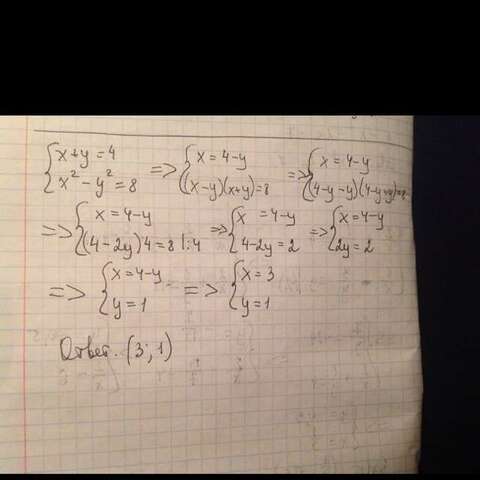 {x+y=4 {x²-y²=8 => {x=4-y {(x-y)(x+y)=8 => {x=4-y {(4-y-y)(4-y+y)=8
=> {x=4-y {(4-2y)4=8 |:4 => {x=4-y {4-2y=2 => {x=4-y {2y=2
=> {x=4-y {y=1 => {x=3 {y=1
Ответ. (3; 1)